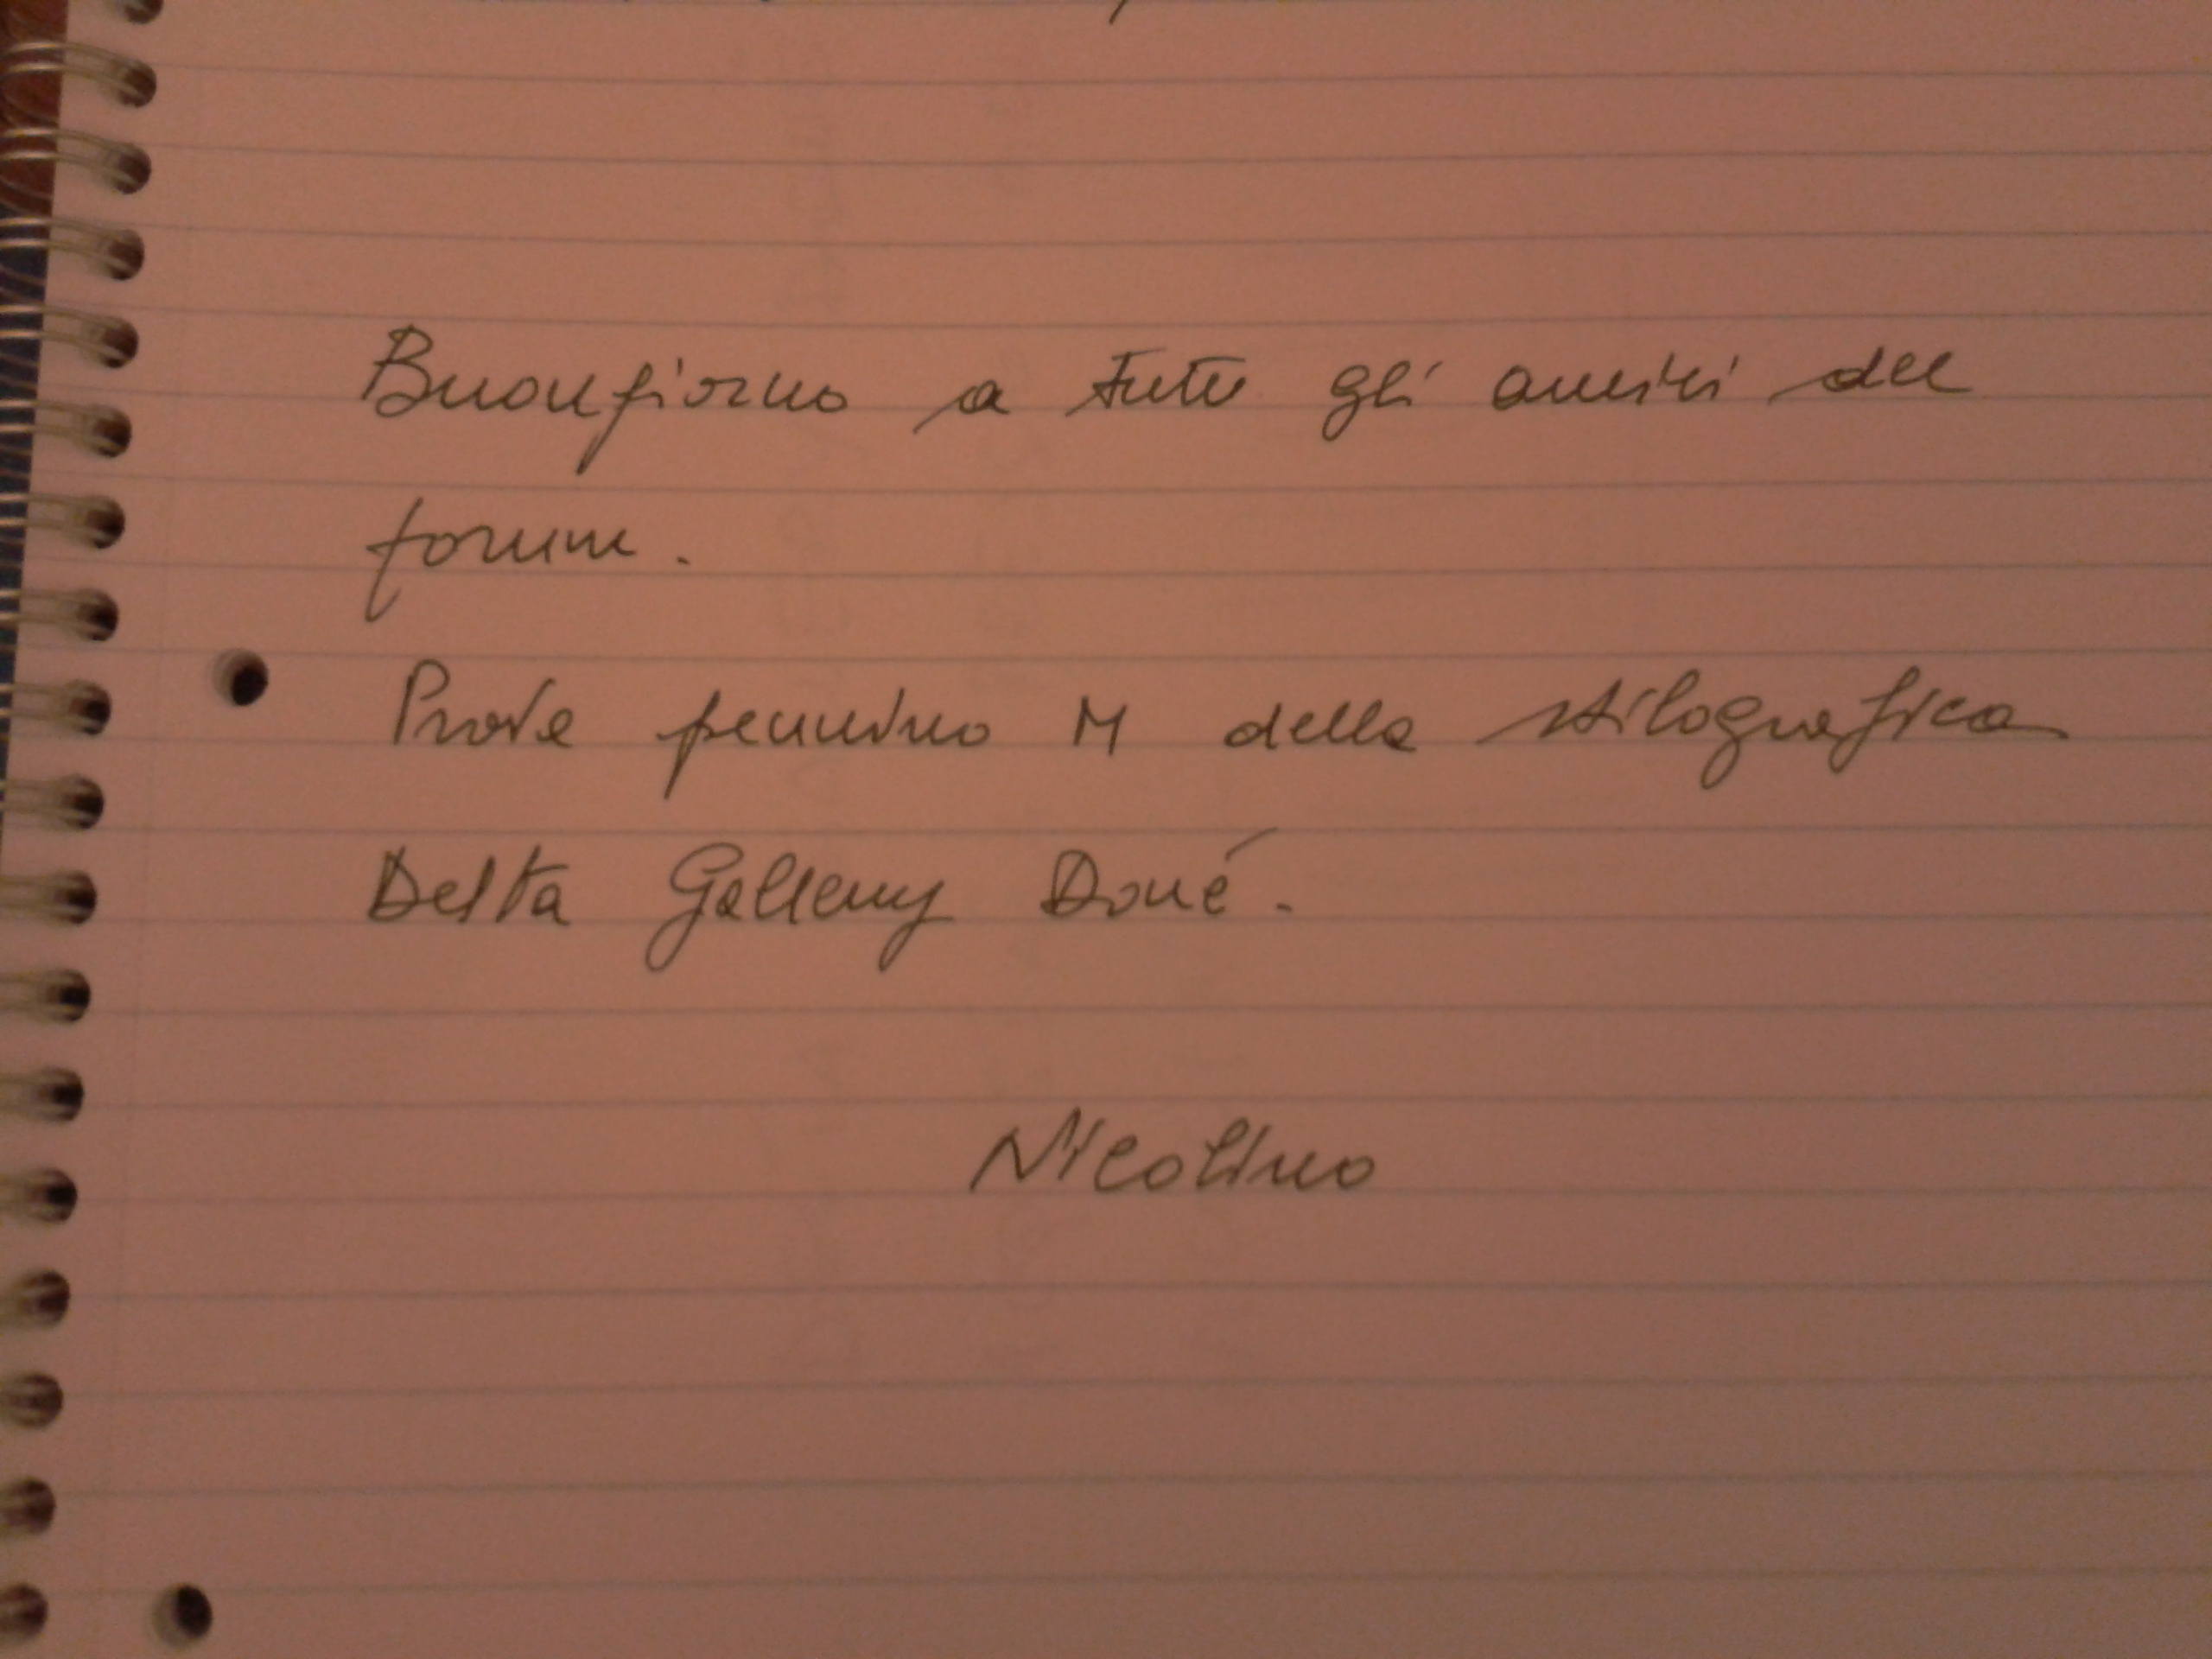 Buongiorno a tutti gli amici del
forum.
Prova pennino M della stilografica
Delta Gallery Doué.
Nicolino